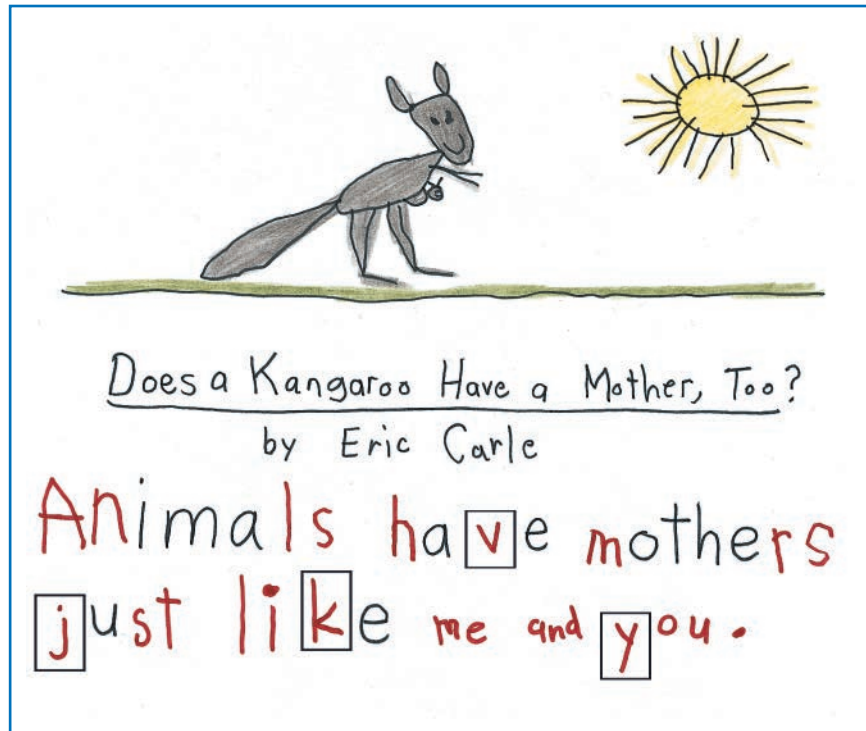 Does a Kangaroo Have a Mother, Too?
by Eric Carle
Animals have mothers
just like me and you.